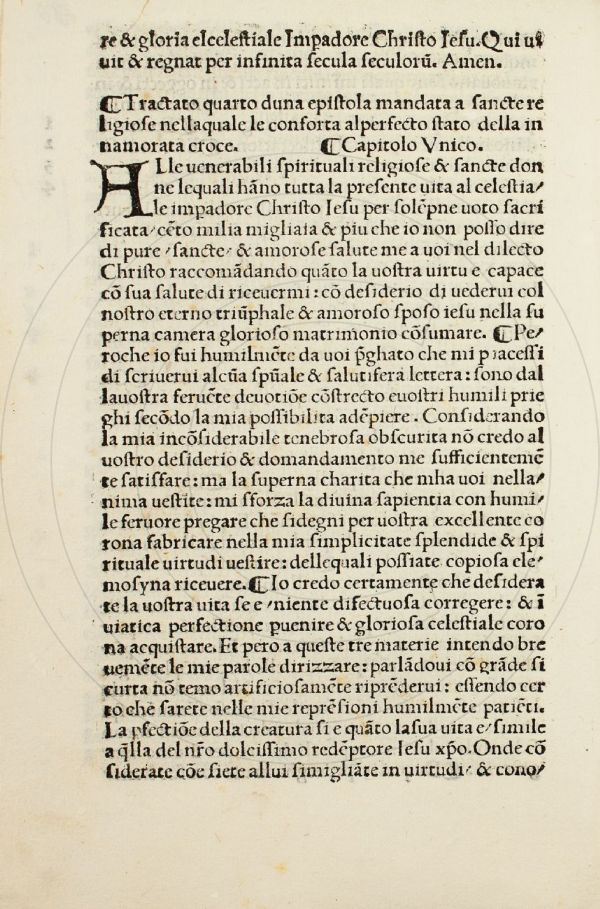 re & gloria elceleſtiale Impadore Chriſto Ieſu. Qui ui
uit & regnat per infinita ſecula ſeculorū. Amen.
¶Tractato quarto duna epiſtola mandata a ſancte re
ligioſe nellaquale le conforta alperfecto ſtato della in
namorata croce. ¶Capitolo Vnico.
ALle uenerabili ſpirituali religioſe & ſancte don
ne lequali hāno tutta la preſente uita al celeſtia/
le impadore Chriſto Ieſu per ſolēpne uoto ſacri
ficata/cēto milia migliaia & piu che io non poſſo dire
di pure /ſancte/ & amoroſe ſalute me a uoi nel dilecto
Chriſto raccomādando quāto la uoſtra uirtu e capace
cō ſua ſalute di riceuermi: cō deſiderio di uederui col
noſtro eterno triūphale & amoroſo ſpoſo ieſu nella ſu
perna camera glorioſo matrimonio cōſumare. ¶Pe/
roche io fui humilmēte da uoi p̄ghato che mi piaceſſi
di ſcriuerui alcūa ſpūale & ſalutifera lettera: ſono dal
lauoſtra feruēte deuotiōe cōſtrecto euoſtri humili prie
ghi ſecōdo la mia poſſibilita adēpiere. Conſiderando
la mia incōſiderabile tenebroſa obſcurita nō credo al
uoſtro deſiderio & domandamento me ſufficientemē
te ſatiſfare: ma la ſuperna charita che mha uoi nella/
nima ueſtite: mi ſforza la diuina ſapientia con humi/
le feruore pregare che ſidegni per uoſtra excellente co
rona fabricare nella mia ſimplicitate ſplendide & ſpi
rituale uirtudi ueſtire: dellequali poſſiate copioſa ele/
moſyna riceuere. ¶Io credo certamente che deſidera
te la uoſtra uita ſe e/niente difectuoſa corregere: & ī
uiatica perfectione puenire & glorioſa celeſtiale coro
na acquiſtare. Et pero a queſte tre materie intendo bre
uemēte le mie parole dirizzare: parlādoui cō grāde ſi
curta nō temo artificioſamēte riprēderui: eſſendo cer
to che ſarete nelle mie reprēſioni humilmēte patiēti.
La pfectiōe della creatura ſi e quāto laſua uita e/ſimile
a q̄lla del nr̄o dolciſſimo redēptore Ieſu xp̄o. Onde cō
ſiderate cōe ſiete allui ſimigliāte in uirtudi/ & cono/